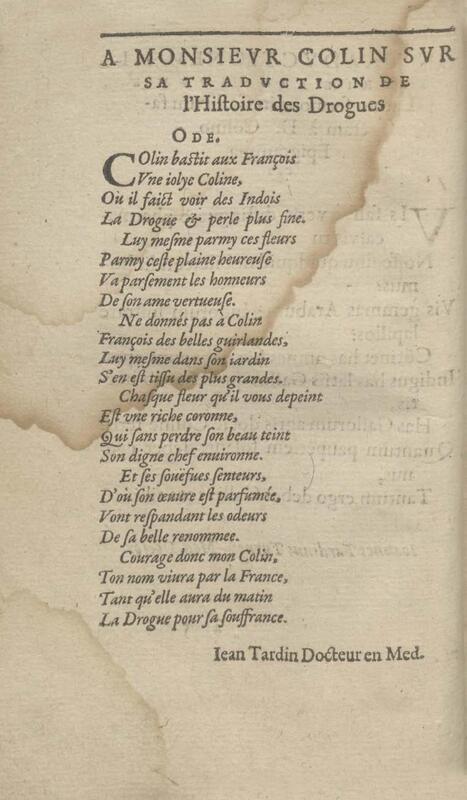 A MONSIEVR COLIN SVR
SA TRADVCTION DE
l'Histoire des Drogues
ODE.
COlin bastit aux François
Vne iolye Coline,
Ou il faict voir des Indois
La Drogue & perle plus fine.
Luy mesme parmy ces fleurs
Parmy ceste plaine heureuse
Va parsement les honneurs
De son ame vertueuse.
Ne donnés pas à Colin
François des belles guirlandes,
Luy mesme dans son iardin
S'en est tissu des plus grandes.
Chasque fleur qu'il vous depeint
Est vne riche coronne,
Qui sans perdre son beau teint
Son digne chef enuironne.
Et ses souëfues senteurs,
D'où son œuure est parfumée,
Vont respandant les odeurs
De sa belle renommee.
Courage donc mon Colin,
Ton nom viura par la France,
Tant qu'elle aura du matin
La Drogue pour sa souffrance.
Iean Tardin Docteur en Med.